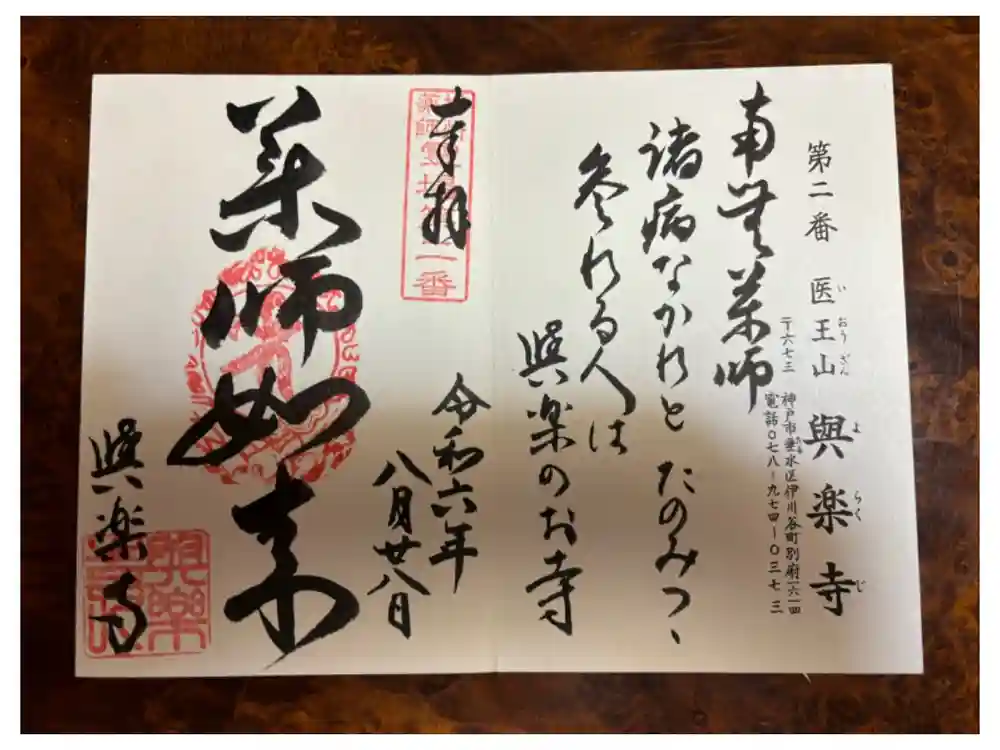 第二番 医王山 與楽寺
いおうざん よらくじ
〒六七三 神戸市垂水区伊川谷町別府一六一四
たるみ
電話〇七八ー九七四ー〇三七三
南無薬師
諸病なかれと たのみつゝ
参れる人は
與楽のお寺
奉拝
薬師霊場第二番
令和六年
八月廿八日
薬師如来
與楽寺